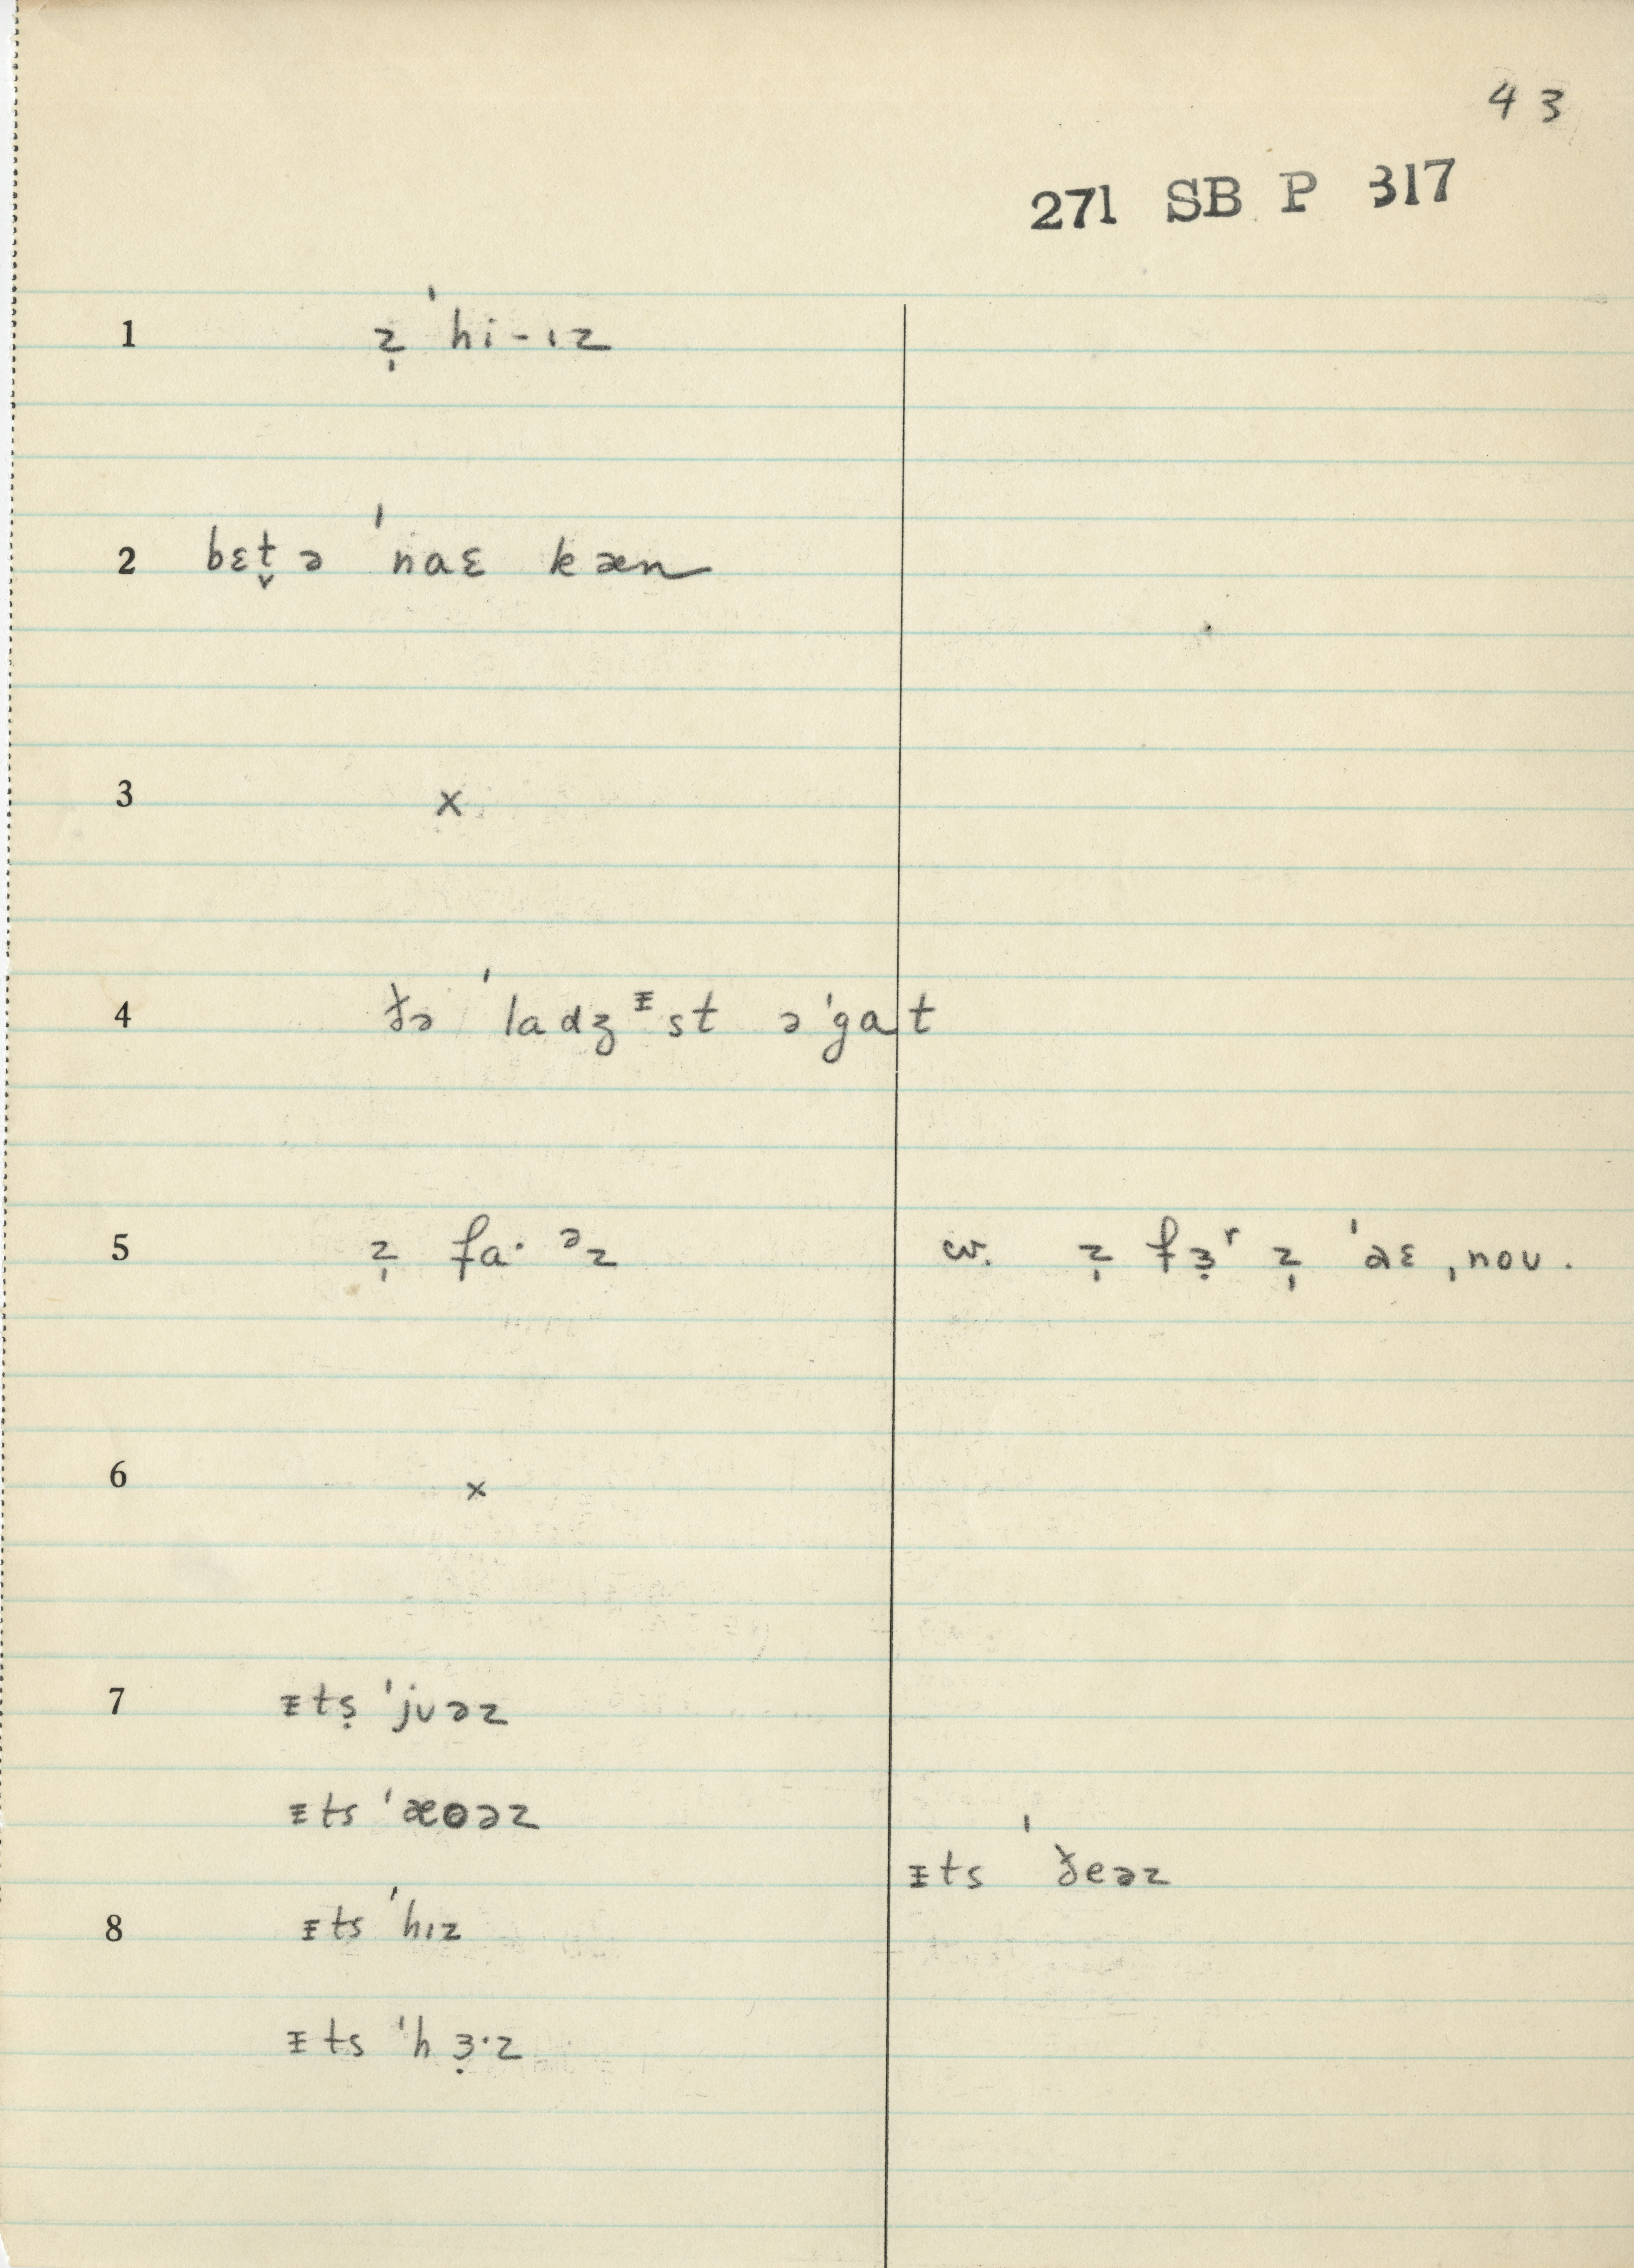 43
271 SB P 317
1 z̩ ˈhi-ɪz
2 bɛt̬ə ˈnaɛ kæn
3 x
4 ðə ˈladʒᵻst əˈgat
5 z̩ fa· ᵊz cw. z̩ fɜ̣ʳ z̩ ˈaɛ ˌnoʊ.
6 x
7 ᵻtṣ ˈjʊəz
ᵻts ˈæʊəz
ᵻts ˈðeəz
8 ᵻts ˈhɪz
ᵻts ˈhɜ̣·z